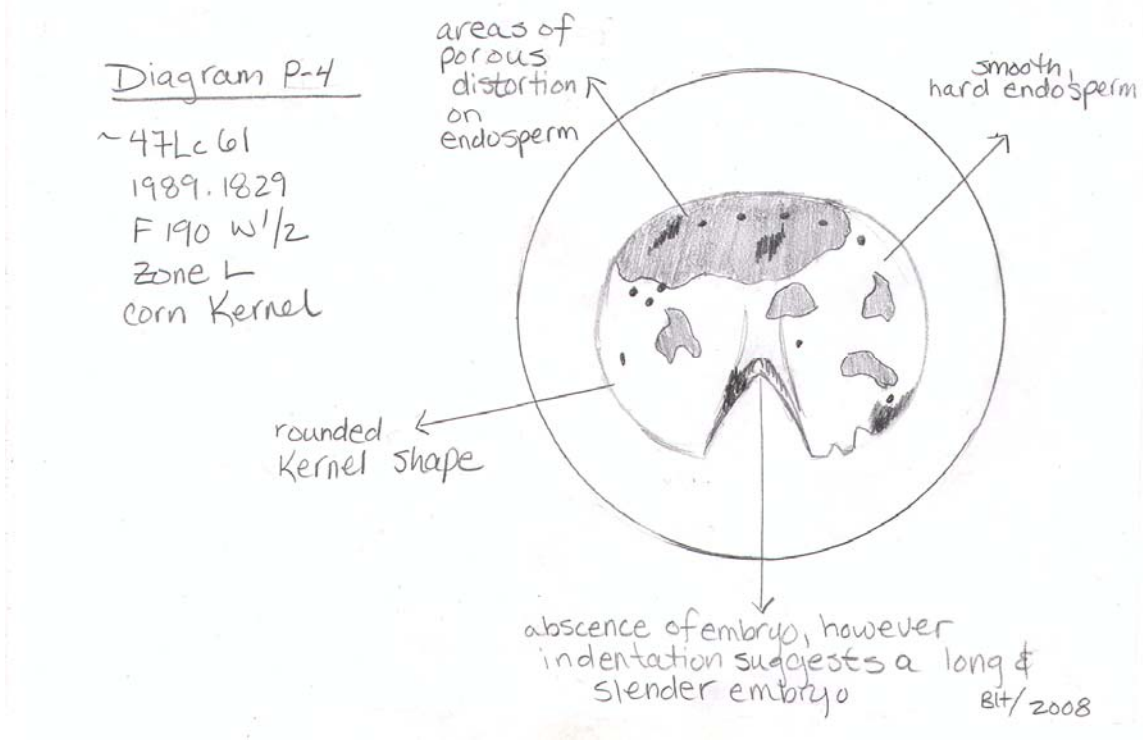 Diagram P-4
~47Lc61
1989.1829
F 190 W 1/2
Zone L
corn Kernel
areas of
porous
distortion
on
endosperm
smooth,
hard endosperm
rounded
Kernel shape
abscence of embryo, however
indentation suggests a long &
slender embryo
Blt/2008